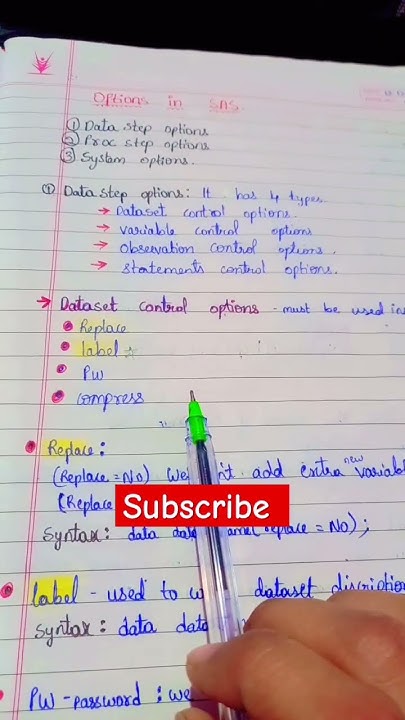 Options in SAS.
① Data step options
② Proc step options
③ System options.
① Data step options: It has 4 types.
→ Dataset control options.
→ variable control options
→ observation control options.
→ statements control options.
→ Dataset control options - must be used in
Replace
label ☆
PW
compress
Replace:
(Replace = No) we add extra new variabl
(Replace
Subscribe
Syntax: data (replace = No);
label - used to dataset discription
Syntax: data data
PW - password : we